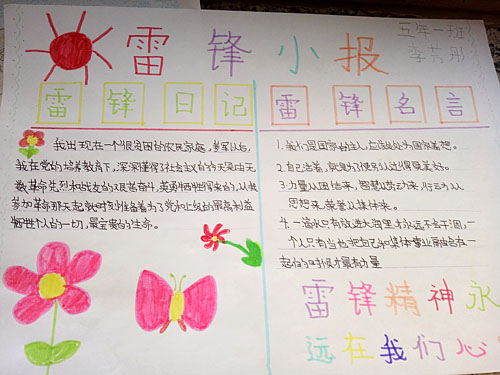 雷锋小报
五年一班
李芳彤
雷锋日记
我出现在一个很贫困的农民家庭,参军以后,
我在党的培养教育下,深深懂得了社会主义的今天是由无
数革命先烈和战友的艰苦奋斗,英勇牺牲得来的,从我
参加革命那天起就时刻准备着为了党和上级的最高利益
牺牲个人的一切,最宝贵的生命。
雷锋名言
1.我们是国家的主人,应该处处为国家着想。
2.自己活着,就是为了使别人过得更美好。
3.力量从团结来,智慧从劳动来,行动从
思想来,荣誉从集体来。
4.一滴水只有放进大海里才永远不会干涸,一
个人只有当他把自己和集体事业融合在一
起的时候才最有力量
雷锋精神永
远在我们心